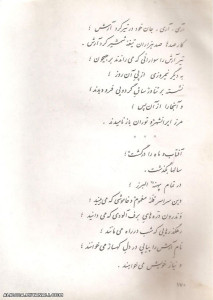 آری، آری، جان خود در تیر کرد آرش؛
کار صدها صد هزاران تیغهٔ شمشیر کرد آرش.
تیر آرش را سوارانی که می راندند بر جیحون؛
به دیگر نیمروزی از پی آن روز؛
نشسته بر تناور ساق گردویی فرو دیدند؛
و آنجا را از آن پس؛
مرز ایرانشهر و توران باز نامیدند.
آفتاب و ماه را در گشت؛
سالها بگذشت.
در تمام پهنهٔ البرز؛
وین سراسر قلهٔ مغموم و خاموشی که می بینید؛
وندرون دره های برف آلودی که می دانید؛
رهگذرهایی که شب در راه می مانند؛
نام آرش را پیاپی در دل کهسار می خوانند؛
و نیاز خویش می خواهند.